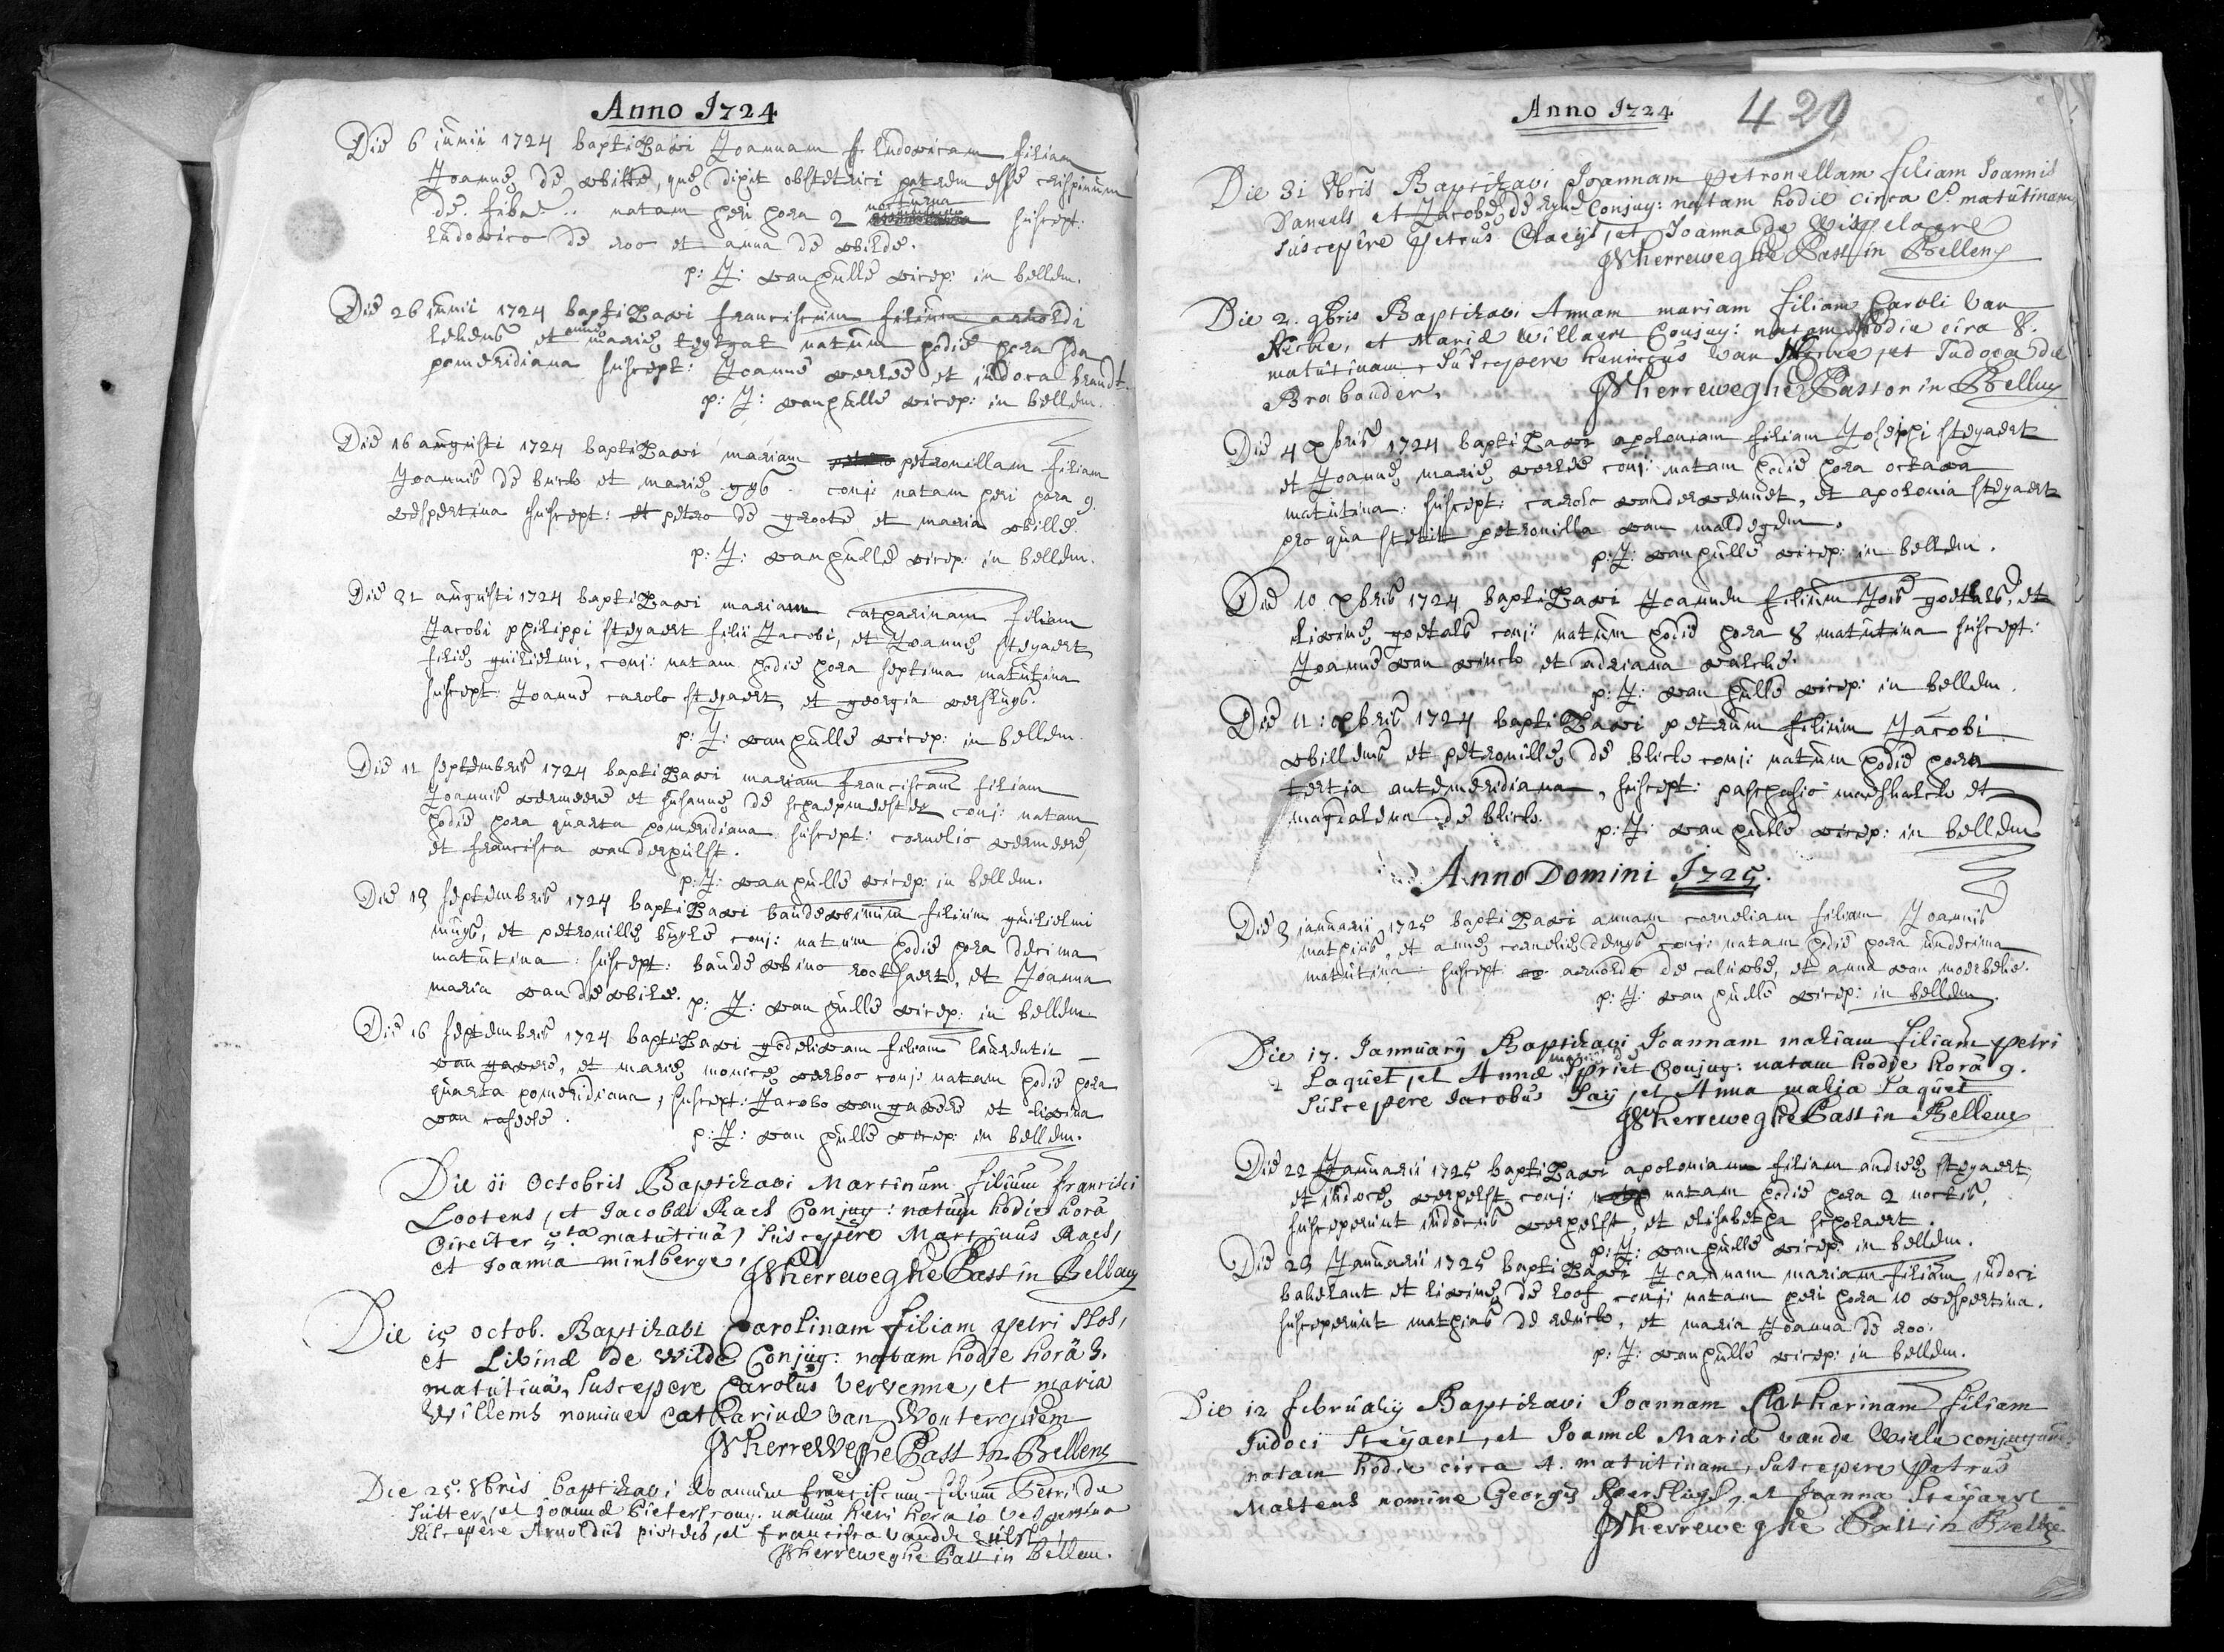 Anno 1724
Die 6 junii 1724 baptizavi Joannam Ludovicam filiam
Joannæ de wilde, quæ dixit obstetrici patrem esse crispinum
de natam heri hora 2 nocturna suscept:
Ludovico de roo et anna de wilde.
p: J: van hulle vicep: in bellem.
Die 26 junii 1724 baptizavi franciscum filium arnoldi
et annæ mariæ teytgat natum hodie hora
pomeridiana suscept: Joanne et judoca brandt.
p: J: van hulle vicep: in bellem.
Die 16 augusti 1724 baptizavi mariam petronillam filiam
Joannis de buck et mariæ conj: natam heri hora 9
vespertina suscept: et petro de groote et maria wille.
p: J: van hulle vicep: in bellem.
Die 31 augusti 1724 baptizavi mariam catharinam filiam
Jacobi philippi steyaert filii Jacobi, et Joannæ steyaert
filiæ guilielmi, conj: natam hodie hora septima matutina
suscept: Joanne carolo steyaert, et georgia versluys.
p: J: van hulle vicep: in bellem.
Die 11 septembris 1724 baptizavi mariam franciscam filiam
Joannis vermeere et susannæ de schaepmeester conj: natam
hodie hora quarta pomeridiana suscept: cornelio vermeere,
et francisca vanderhulst.
p: J: van hulle vicep: in bellem.
Die 13 septembris 1724 baptizavi baudewinum filium guilielmi
muys, et petronillæ buyse conj: natum hodie hora decima
matutina: suscept: baudewino rootsaert, et Joanna
maria van de wile. p: J: van hulle vicep: in bellem
Die 16 septembris 1724 baptizavi godelivam filiam laurentii
van gavere, et mariæ monicæ verboo conj: natam hodie hora
quarta pomeridiana, suscept: Jacobo van gavere et livina
van caseele.
p: J: van hulle vicep: in bellem.
Die 11 Octobris Baptizavi Martinum filium francisci
Lootens, et Jacobæ Raes Conjug: natum hodie horâ
Circiter 5ta matutinâ, Suscepêre Martinus Raes,
et Joanna minsberge,
JVherreweghe Past in Bellem
Die 15 octob. Baptizavi Carolinam filiam petri Stos,
et Livinæ de Wilde Conjug: natam hodie horâ 3.
matutinâ, Suscepere Carolus Vervenne, et maria
Willems nomine Catharinæ van Wonterghem
JVherreweghe Past in Bellem
Die 25. 8bris baptizavi Joannem franciscum filium Petri de
Sutter, et joannæ Pieters conj. natum heri hora 10 vespertina
Suscepêre Arnoldus pieters, et francisca vande
JVherreweghe Past in Bellem.
Anno 1724 429
Die 31 8bris Baptizavi Joannam petronellam filiam Joannis
Danneels et Jacobæ de Conjug: natam hodie circa 8. matutinam
Suscepêre petrus Claeys, et Joanna de Wispelaere
JVherreweghe Past in Bellem
Die 2. 9bris Baptizavi Annam mariam filiam Caroli Van
Hecke, et Mariæ Willaere Conjug: natam hodie circa 8.
matutinam, Suscepere van Hecke, et Judoca de
Brabander.
JVherreweghe Pastor in Bellem
Die 4 Xbris 1724 baptizavi apoloniam filiam Josephi steyaert
et Joannæ mariæ conj: natam hodie hora octava
matutina: suscept: carolo vandervennet, et apolonia steyaert
pro qua stetit petronilla van maldegem.
p: J: van hulle vicep: in bellem.
Die 10 Xbris 1724 baptizavi Joannem filium Jois goethals, et
livinæ goetals conj: natum hodie hora 8 matutina suscept:
Joanne van vinck et adriana valcke.
p: J: van hulle vicep: in bellem.
Die 11: Xbris 1724 baptizavi petrum filium Jacobi
willems et petronillæ de blick conj: natum hodie hora
tertia antemeridiana, suscept: paschasio maeshalck et
magdalena de blick.
p: J: van hulle vicep: in bellem
Anno Domini 1725.
Die 3 januarii 1725 baptizavi annam corneliam filiam Joannis
mathius, et annæ corneliæ denys conj: natam hodie hora undecima
matutina suscept arnoldo de caluwe, et anna van moerbeke.
p: J: van hulle vicep: in bellem.
Die 17. Jannuarÿ Baptizavi Joannam mariam filiam petri
Laquet, et Annæ mariæ de Conjug: natam hodie horâ 9.
Suscepere Jacobus Saÿ, et Anna maria Laquet
JVherreweghe Past in Bellem
Die 22 Januarii 1725 baptizavi apoloniam filiam andreæ steyaert,
et judocæ verhelst conj: natam hodie hora 2 noctis,
susceperunt judocus verhelst, et elisabetha scholaert.
p: J: van hulle vicep: in bellem.
Die 29 Januarii 1725 baptizavi Joannam mariam filiam judoci
babelant et livinæ de roos conj: natam heri hora 10 vespertina.
susceperunt mathias de, et maria Joanna de roo.
p: J: van hulle vicep: in bellem.
Die 12 februarÿ Baptizavi Joannam Catharinam filiam
Judoci Steÿaert, et Joannæ Mariæ vande Wiele conjugum:
natam hodie circa 4. matutinam, Suscepere Petrus
Martens nomine Georgÿ Verslüÿs, et Joanna Steÿaert
JVherreweghe Past in Bellem